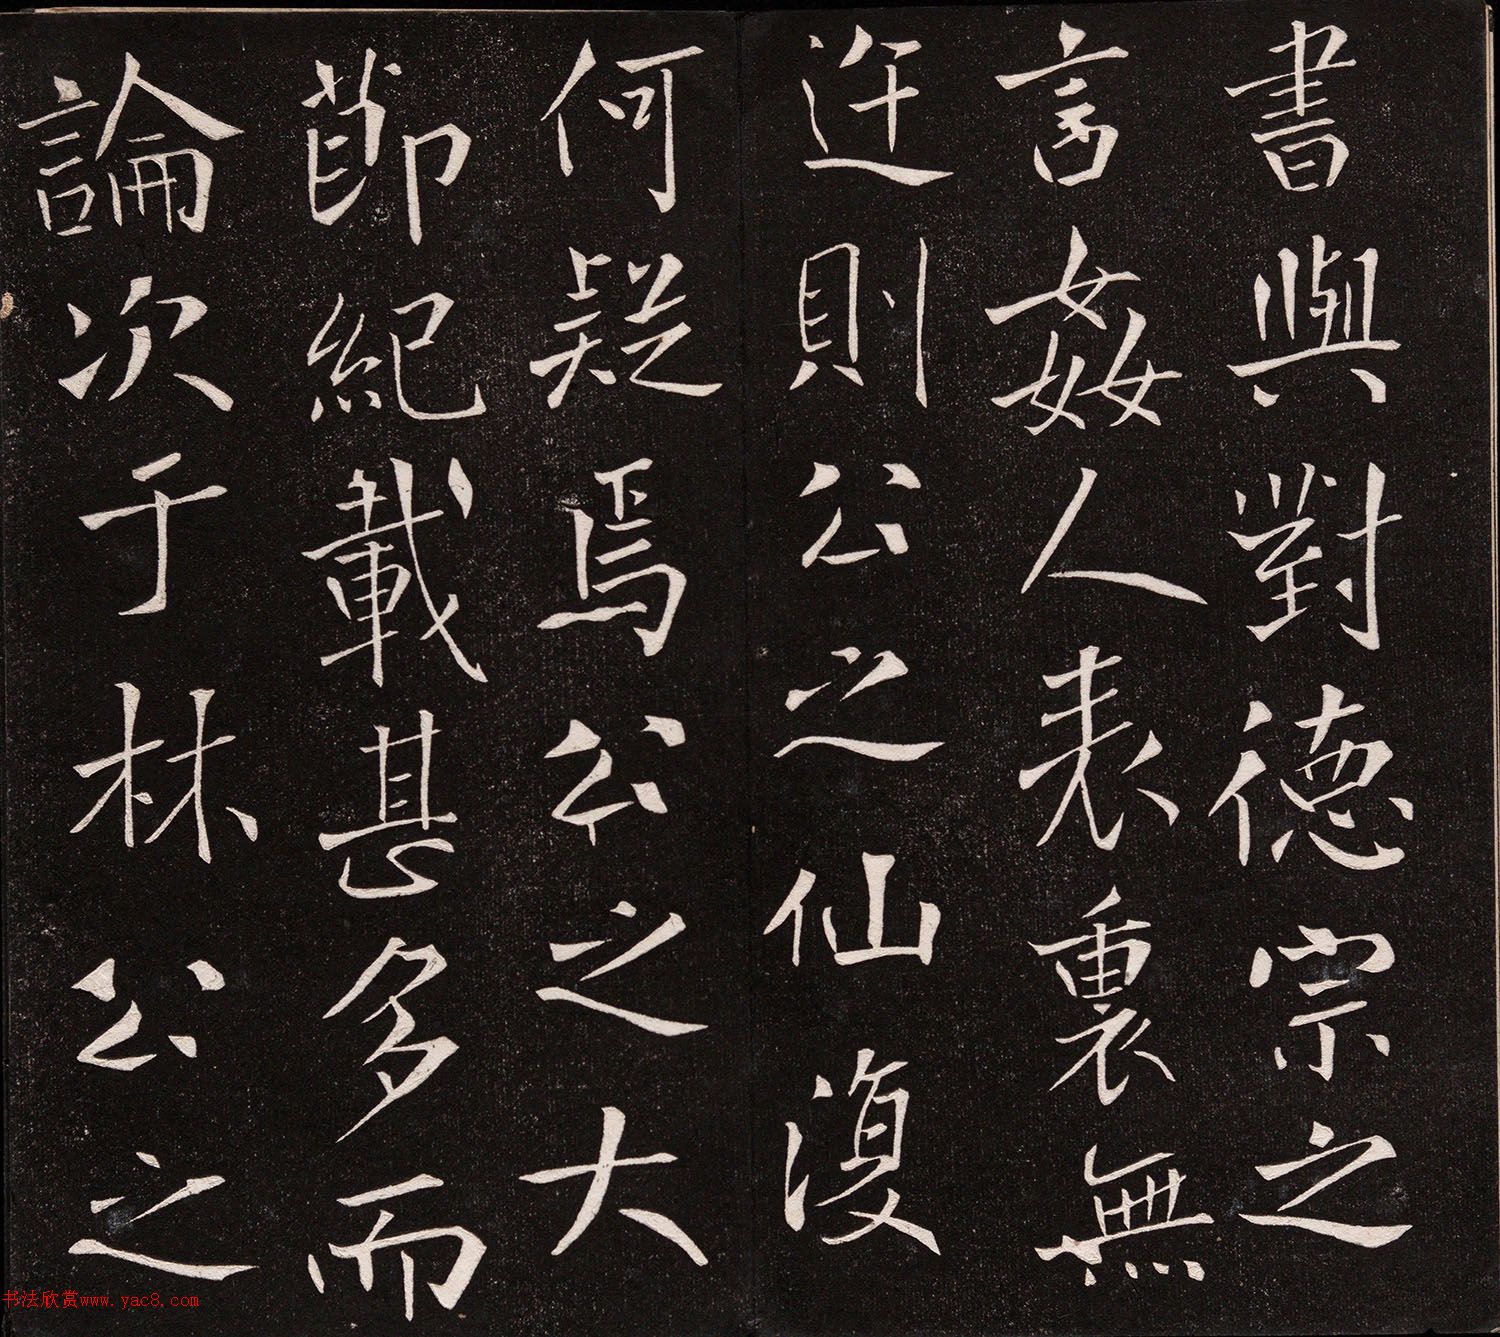 書與對德宗之
言姦人表裏無
迕則公之仙復
何疑焉公之大
節紀載甚多而
論次于林公之
书法欣赏www.yac8.com